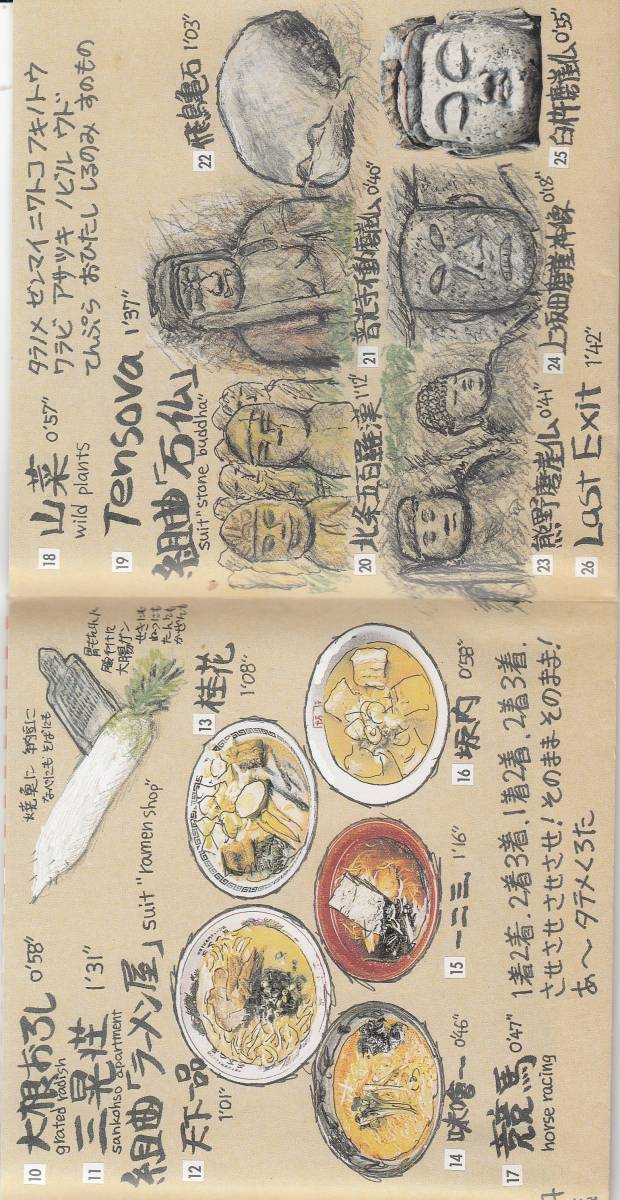 10 大根おろし 0'58"
grated radish
焼魚に 納豆に
なべにも そばにも
胃もたれ
胸やけに
大腸ガン
せきにも
ねつにも
たんにも
かぜにも
11 三晃荘 1'31"
sankohso apartment
組曲「ラーメン屋」 suit "ramen shop"
12 天下一品
1'01"
13 桂花
1'08"
14 味噌一 0'46"
15 一二三 1'16"
16 坂内 0'58"
17 競馬 0'47"
horse racing
1着2着.2着3着.1着2着.2着3着.
させさせさせさせ!そのまま そのまま!
あ〜タテメくろた
18 山菜 0'57"
wild plants
タラノメ ゼンマイ ニワトコ フキノトウ
ワラビ アサツキ ノビル ウド
てんぷら おひたし しるのみ すのもの
19 Tensova 1'37"
組曲「石仏」
suit "stone buddha"
20 北条五百羅漢 1'12"
21 普光寺不動磨崖仏 0'40"
22 飛鳥亀石 1'03"
23 熊野磨崖仏 0'41"
24 上坂田磨崖神像 0'18"
25 臼杵磨崖仏 0'55"
26 Last Exit 1'42"